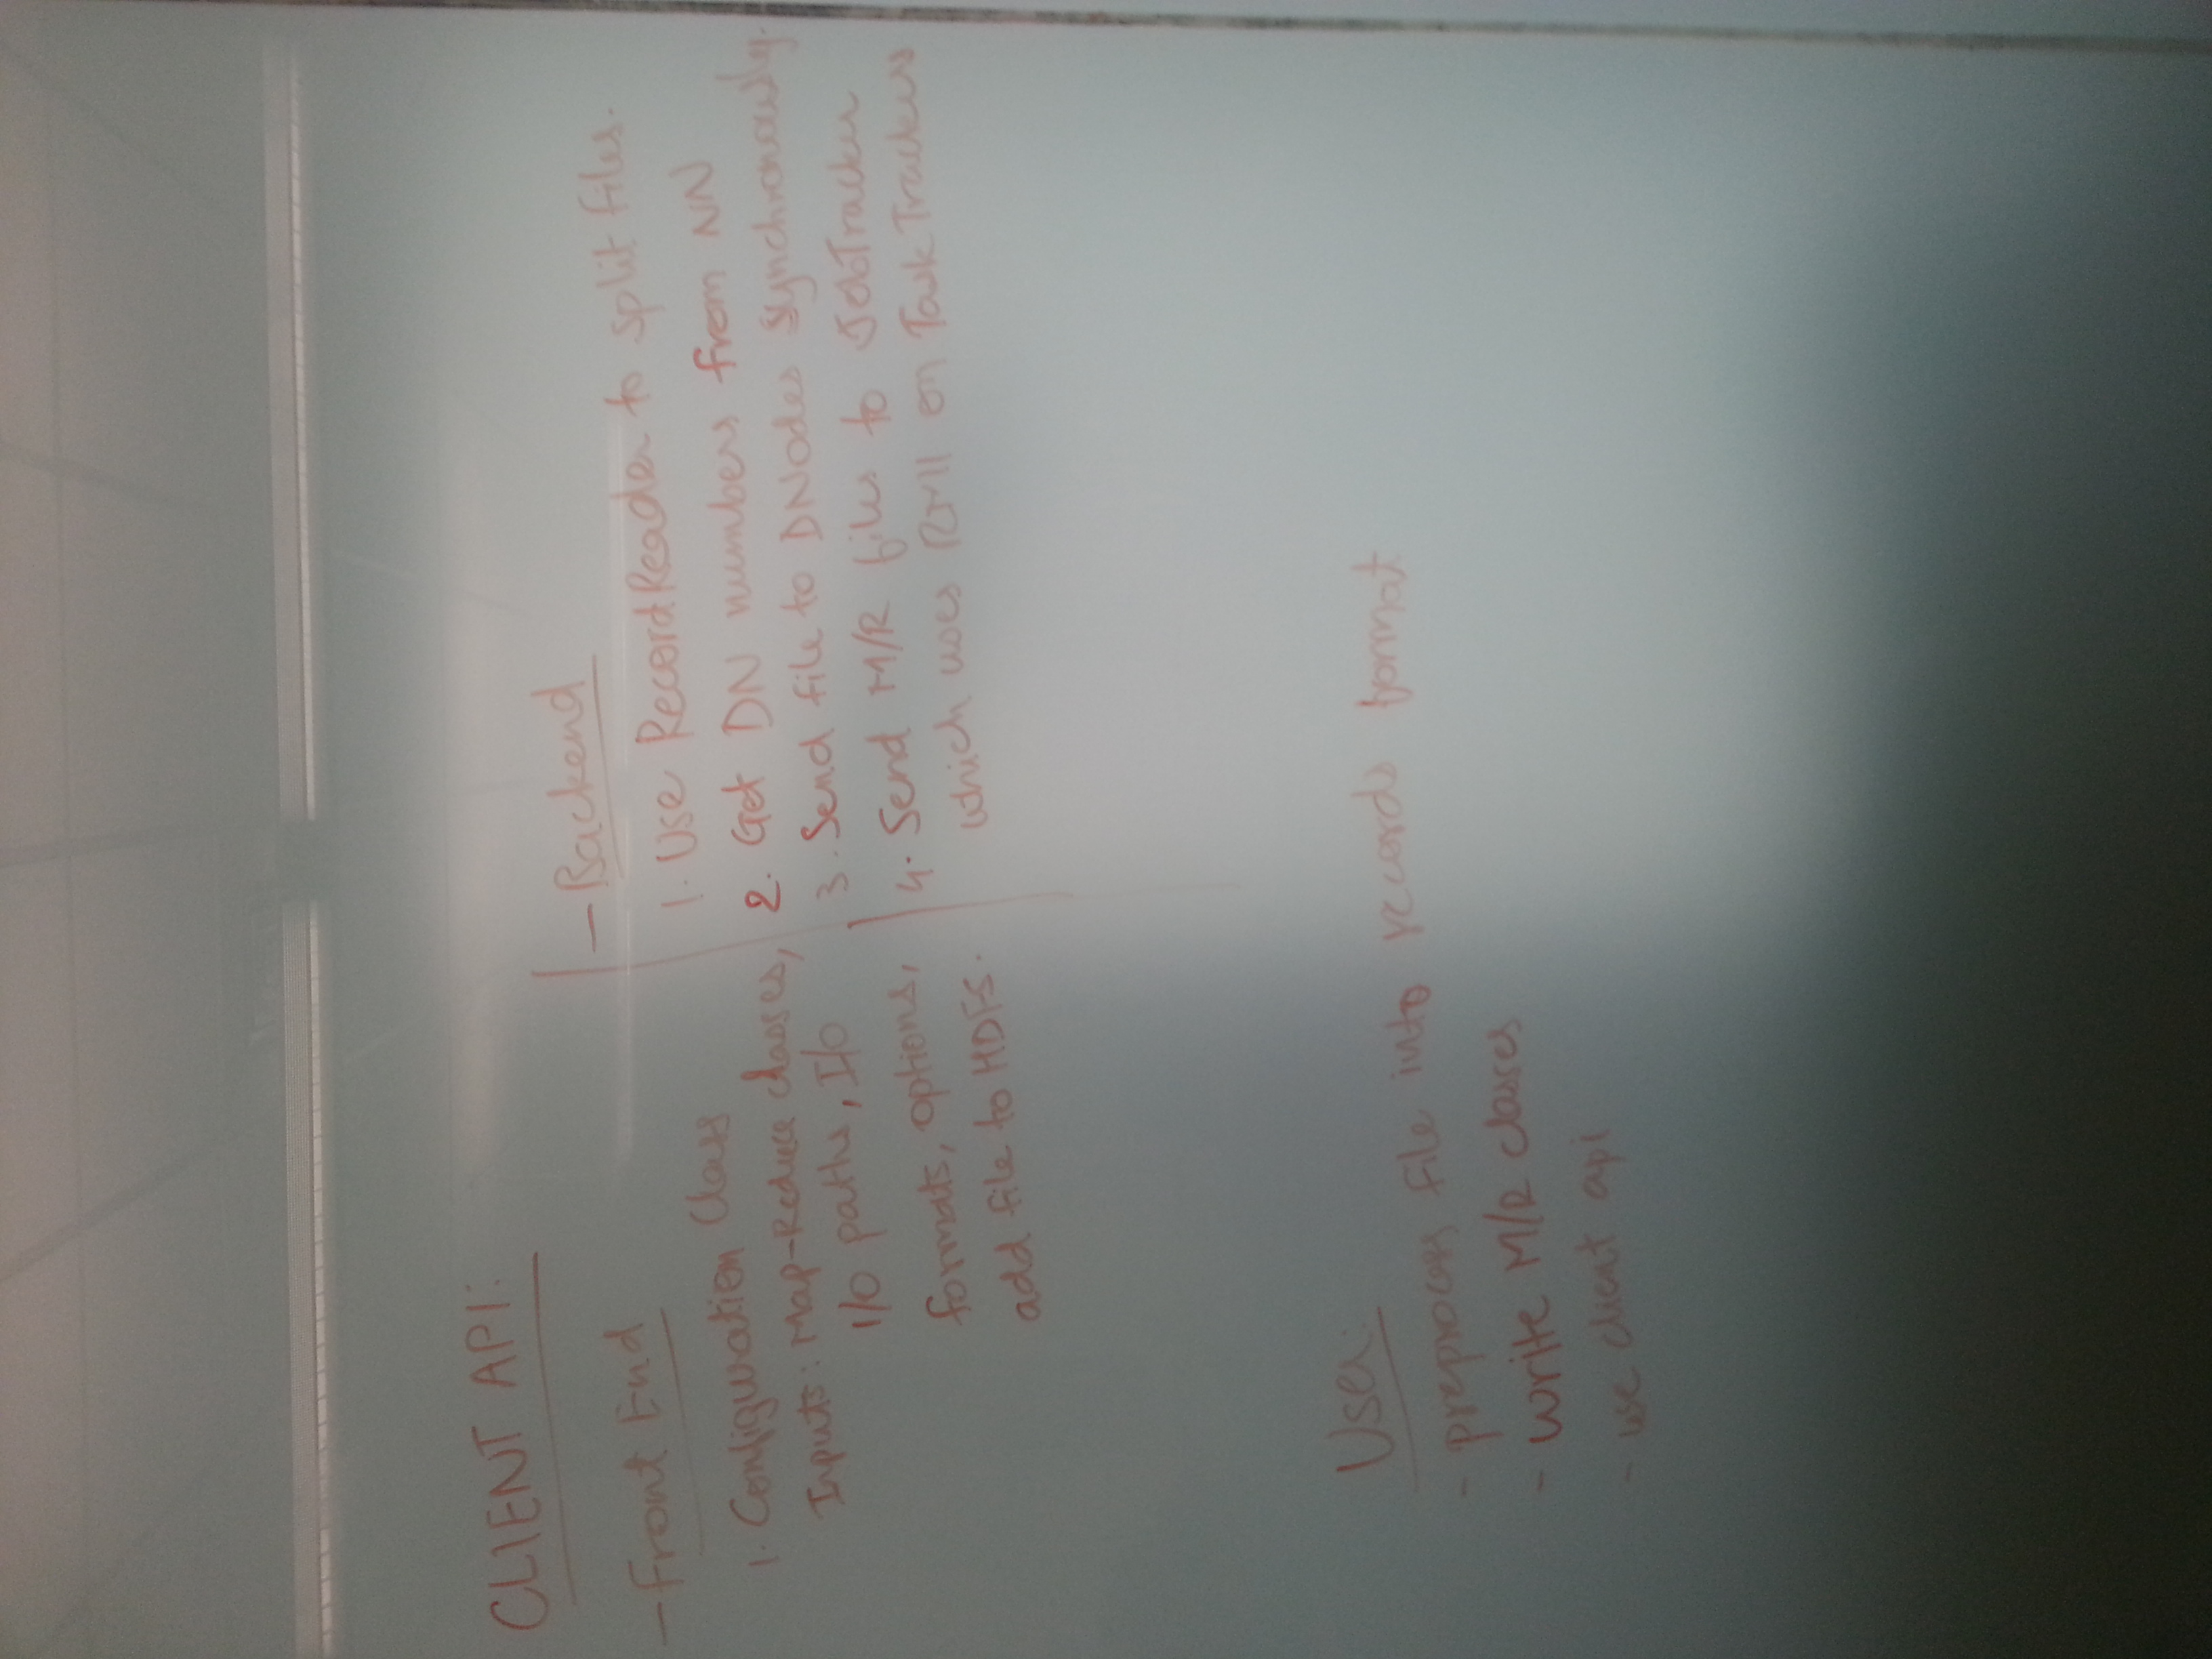 CLIENT API:
- Front End
1. Configuration Class
Inputs: Map-Reduce classes,
I/O paths, I/O
formats, options,
add file to HDFS.
- Backend
1. Use RecordReader to split files.
2. Get DN numbers from NN
3. Send file to DNodes synchronously.
4. Send M/R files to JobTracker
which uses RMI on TaskTrackers
User:
- preprocess file into records format
- write M/R classes
- use client api